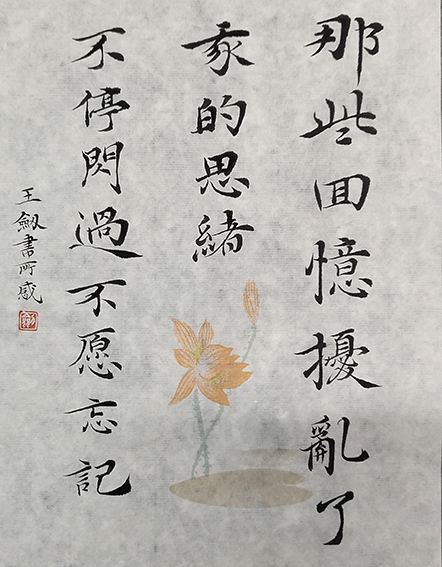 那些回憶擾亂了
我的思緒
不停閃過不愿忘記
王劔書所感